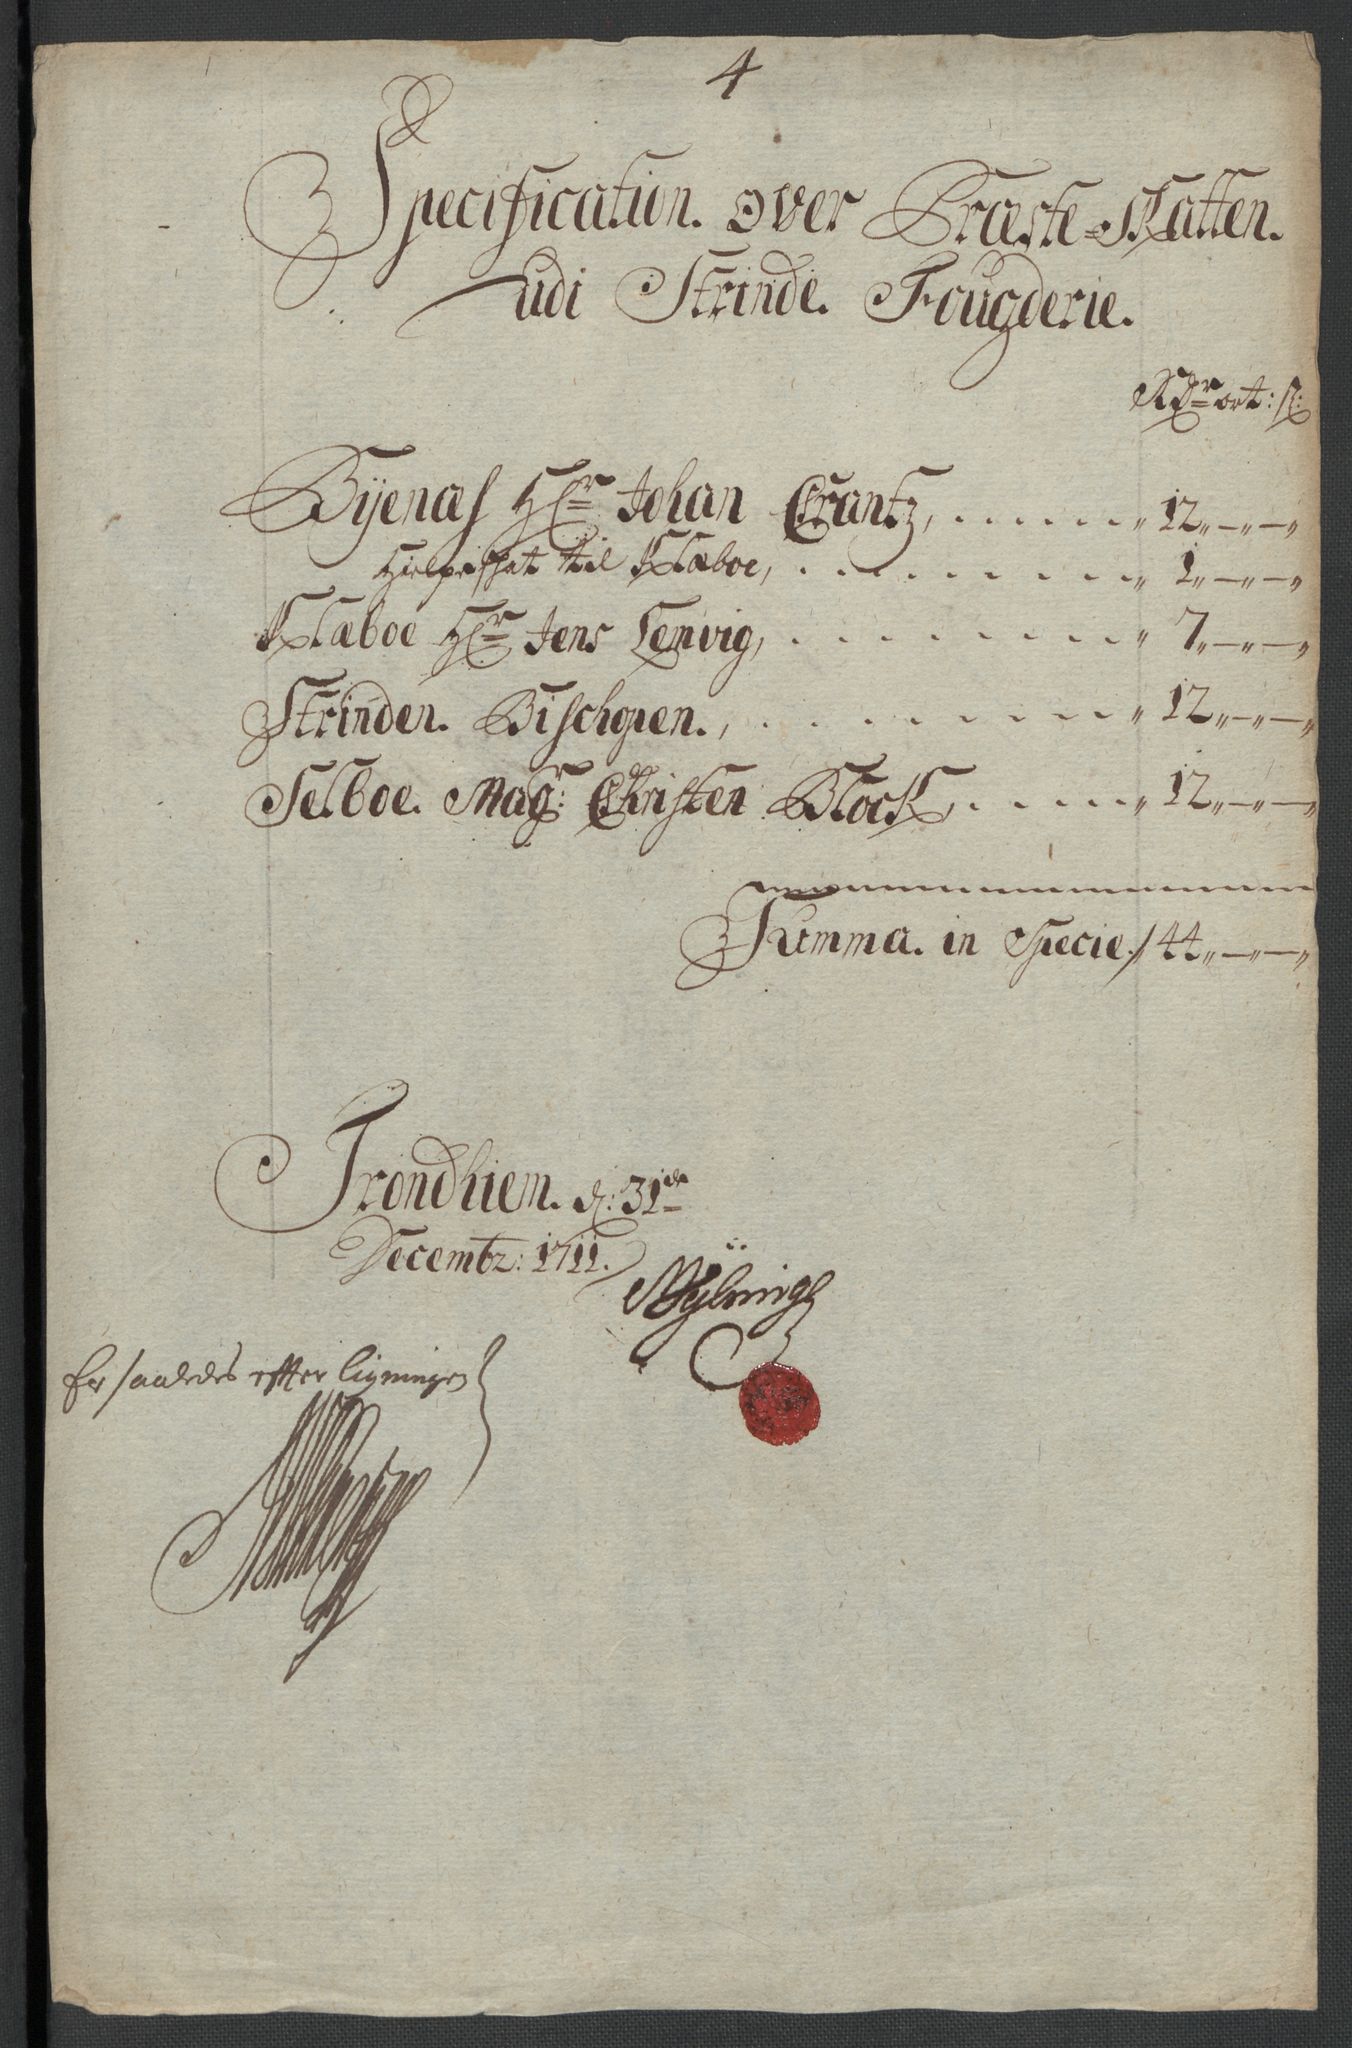 4
Specification. over Præste-Skatten.
udi Strinde. Fougderie.
Rdr ort: s:
Byenæs Hr Johan Crantz, 12 „ — „ — „
Hielpeschat til Klæboe, 1 „ — „ — „
Klæboe Hr Jens Lemvig, 7 „ — „ — „
Strinden. Bischopen., 12 „ — „ — „
Selboe. Magr: Christen Block, 12 „ — „ — „
Summa. in Specie./ 44 „ — „ — „
Trondhiem. d: 31de
Decembr: 1711.
Er saaledes effter ligningen